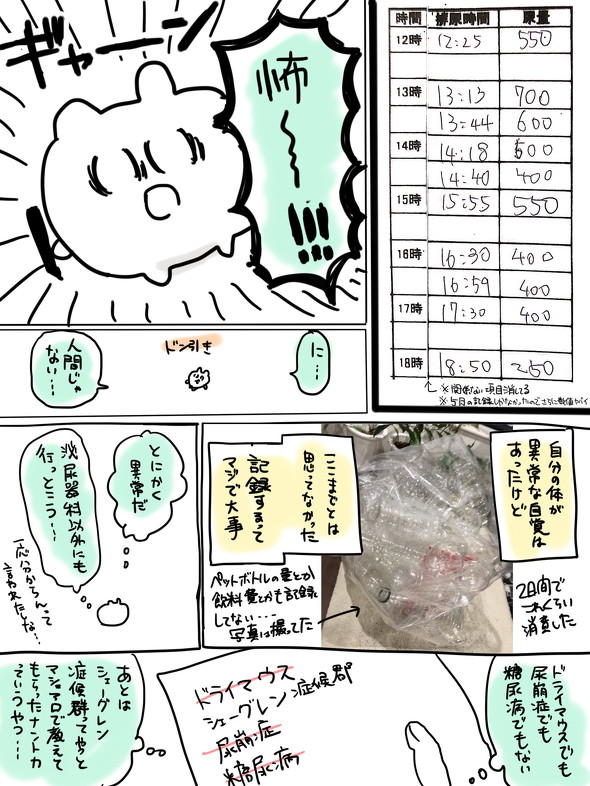 時間 排尿時間 尿量
12時 12:25 550
13時 13:13 700
13:44 600
14時 14:18 500
14:40 400
15時 15:55 550
16時 16:30 400
16:59 400
17時 17:30 400
18時 18:50 250
※関係ない項目消してる
怖〜!!!
ギャーン
に…
ドン引き
人間じゃ
ない…
自分の体が
異常な自覚は
あったけど
ここまでとは
思ってなかった
記録するって
マジで大事
2日間で
これくらい
消費した
ペットボトルの量とか
飲料量とかも記録
してない…
写真は撮ってた
とにかく
異常だ
泌尿器科以外にも
行っとこう…
一応分からんって
言われたしな…
ドライマウスでも
尿崩症でも
糖尿病でもない
ドライマウス
シェーグレン症候群
尿崩症
糖尿病
あとは
シェーグレン
症候群ってやつと
マシュマロで教えて
もらったナントカ
っていうやつ…